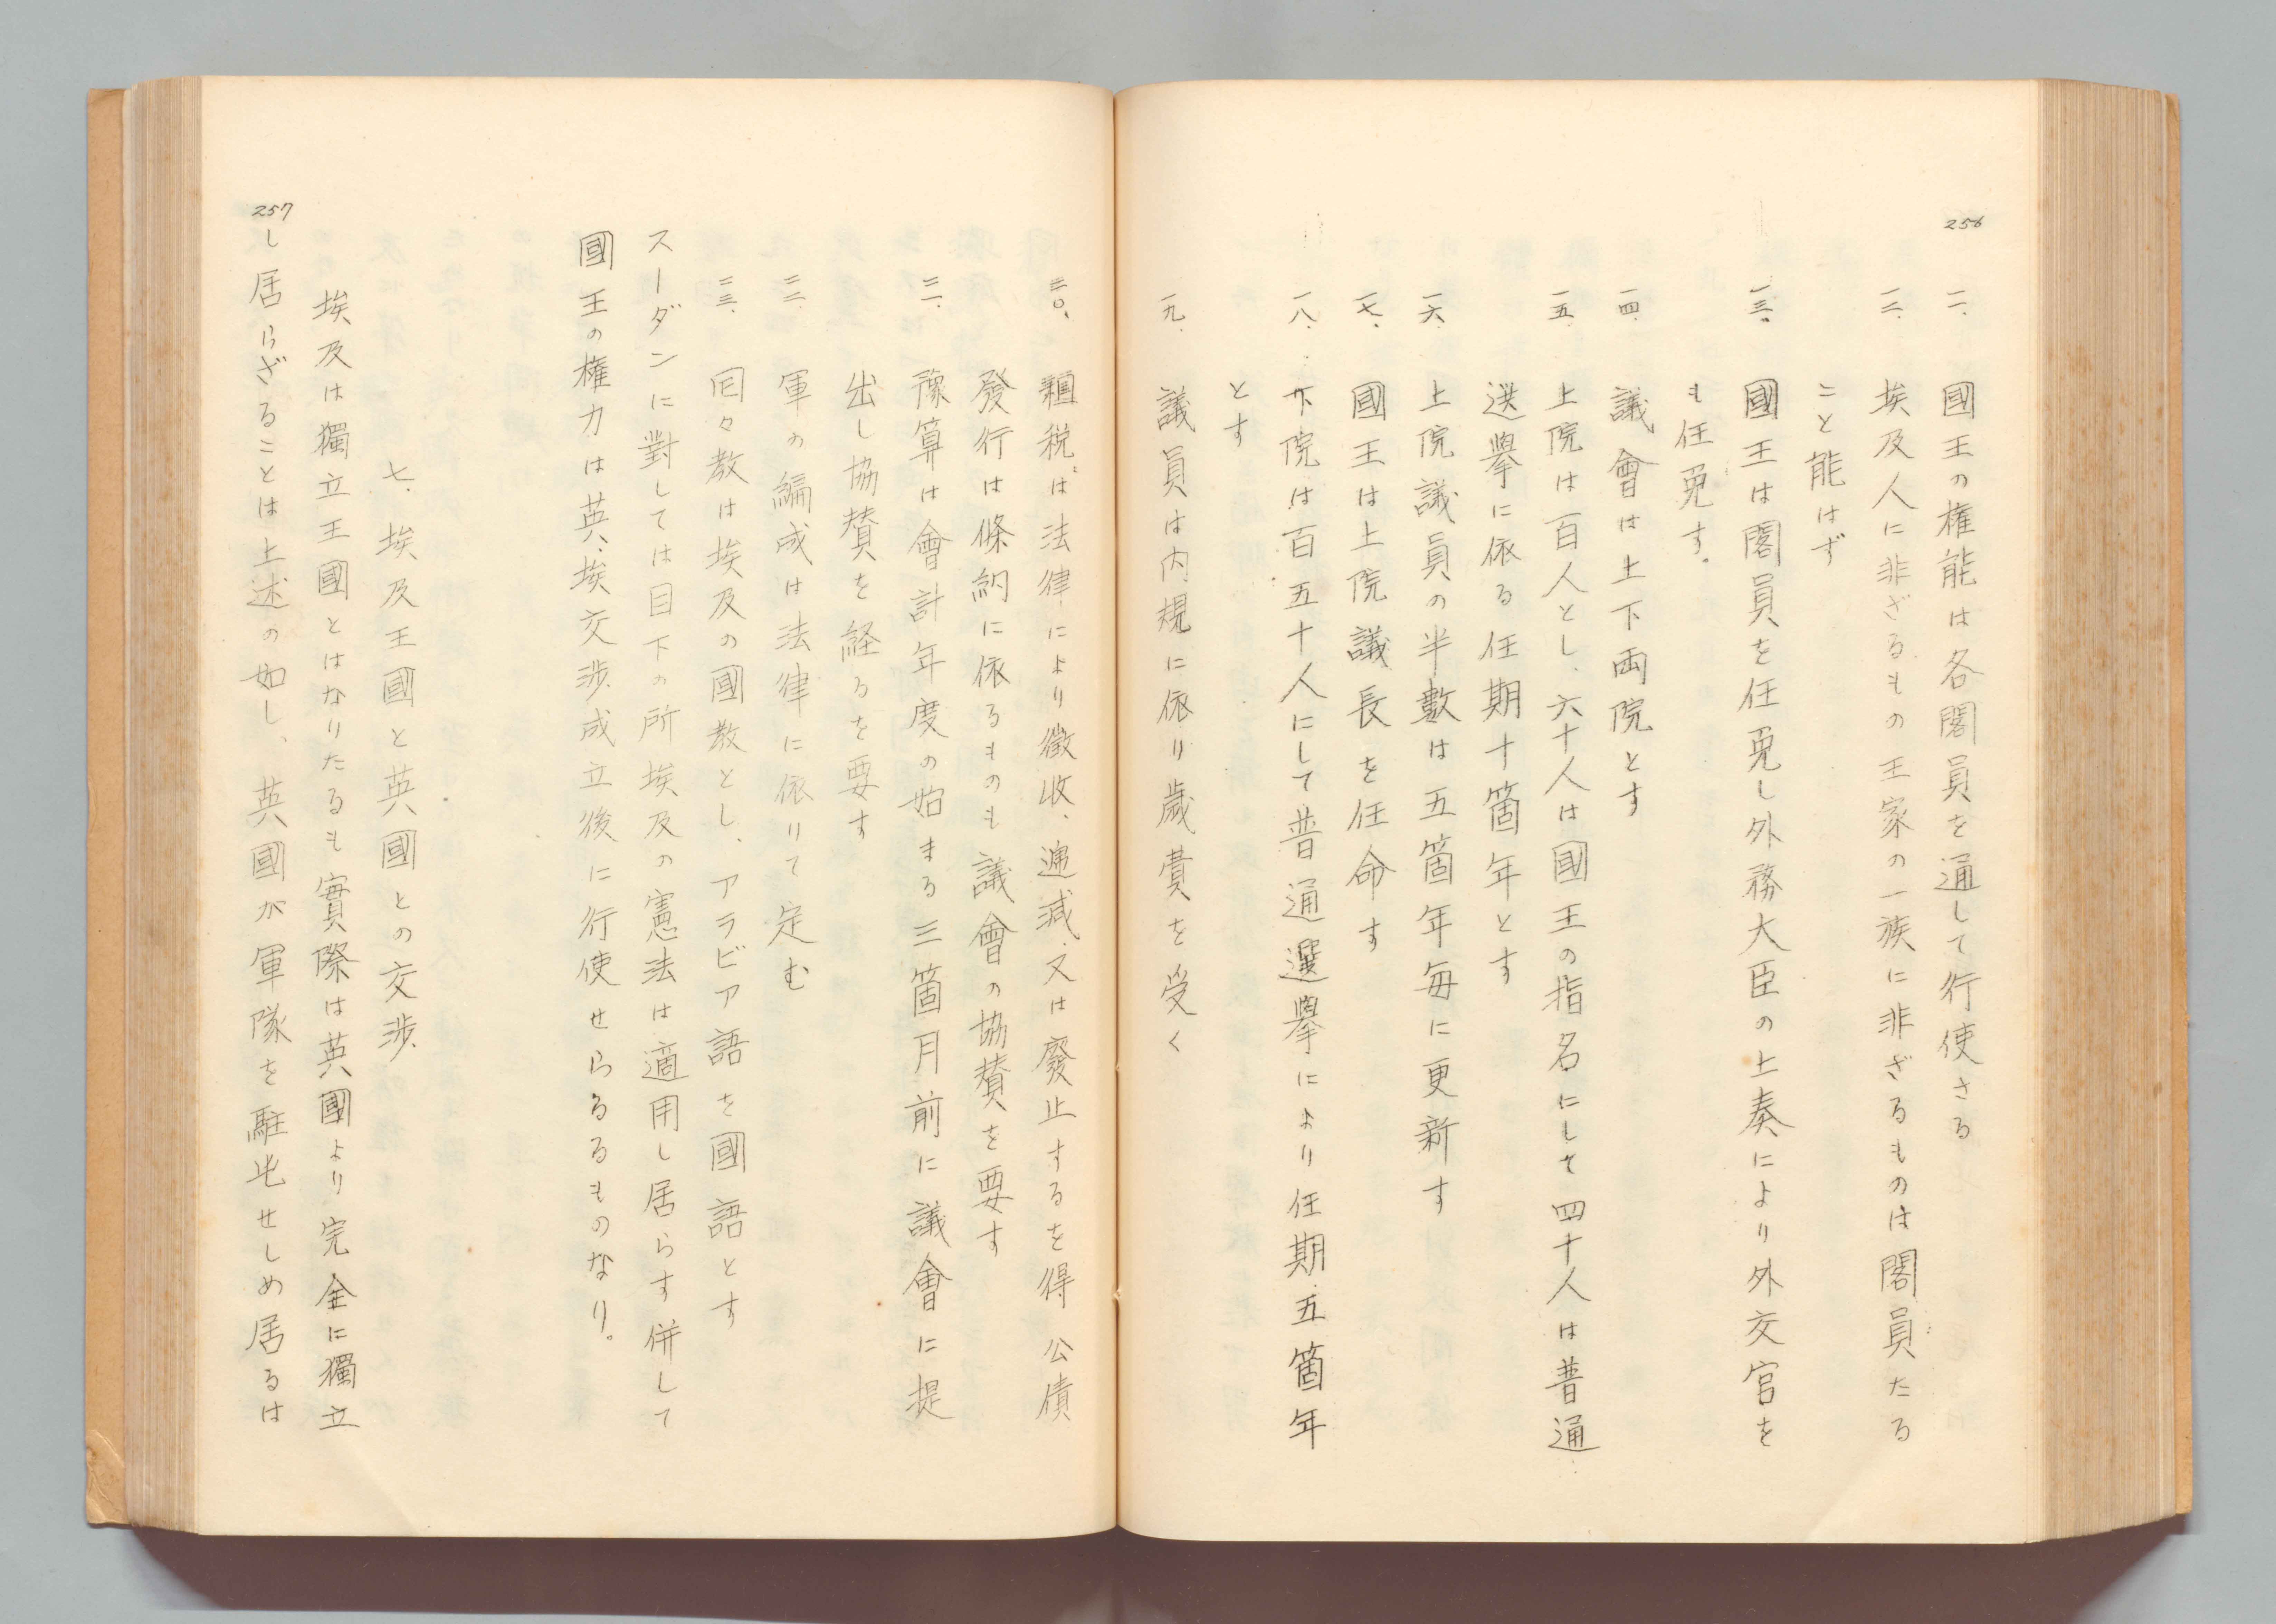 256
一一、國王の権能は各閣員を通して行使さる
一二、埃及人に非ざるもの王家の一族に非ざるものは閣員たる
こと能はず
一三、國王は閣員を任免し外務大臣の上奏により外交官を
も任免す。
一四、議會は上下両院とす
一五、上院は百人とし、六十人は國王の指名にして四十人は普通
選擧に依る任期十箇年とす
一六、上院議員の半數は五箇年毎に更新す
一七、國王は上院議長を任命す
一八、下院は百五十人にして普通選擧により任期五箇年
とす
一九、議員は内規に依り歳費を受く
二〇、租税は法律により徴收、逓減、又は廢止するを得 公債
發行は條約に依るものも議會の協賛を要す
二一、豫算は會計年度の始まる三箇月前に議會に提
出し協賛を経るを要す
二二、軍の編成は法律に依りて定む
二三、回々教は埃及の國教とし、アラビア語を國語とす
スーダンに對しては目下の所埃及の憲法は適用し居らす併して
國王の権力は英、埃交渉成立後に行使せらるるものなり。
七、埃及王國と英國との交渉
埃及は獨立王國とはなりたるも實際は英國より完全に獨立
257
し居らざることは上述の如し、英國が軍隊を駐屯せしめ居るは